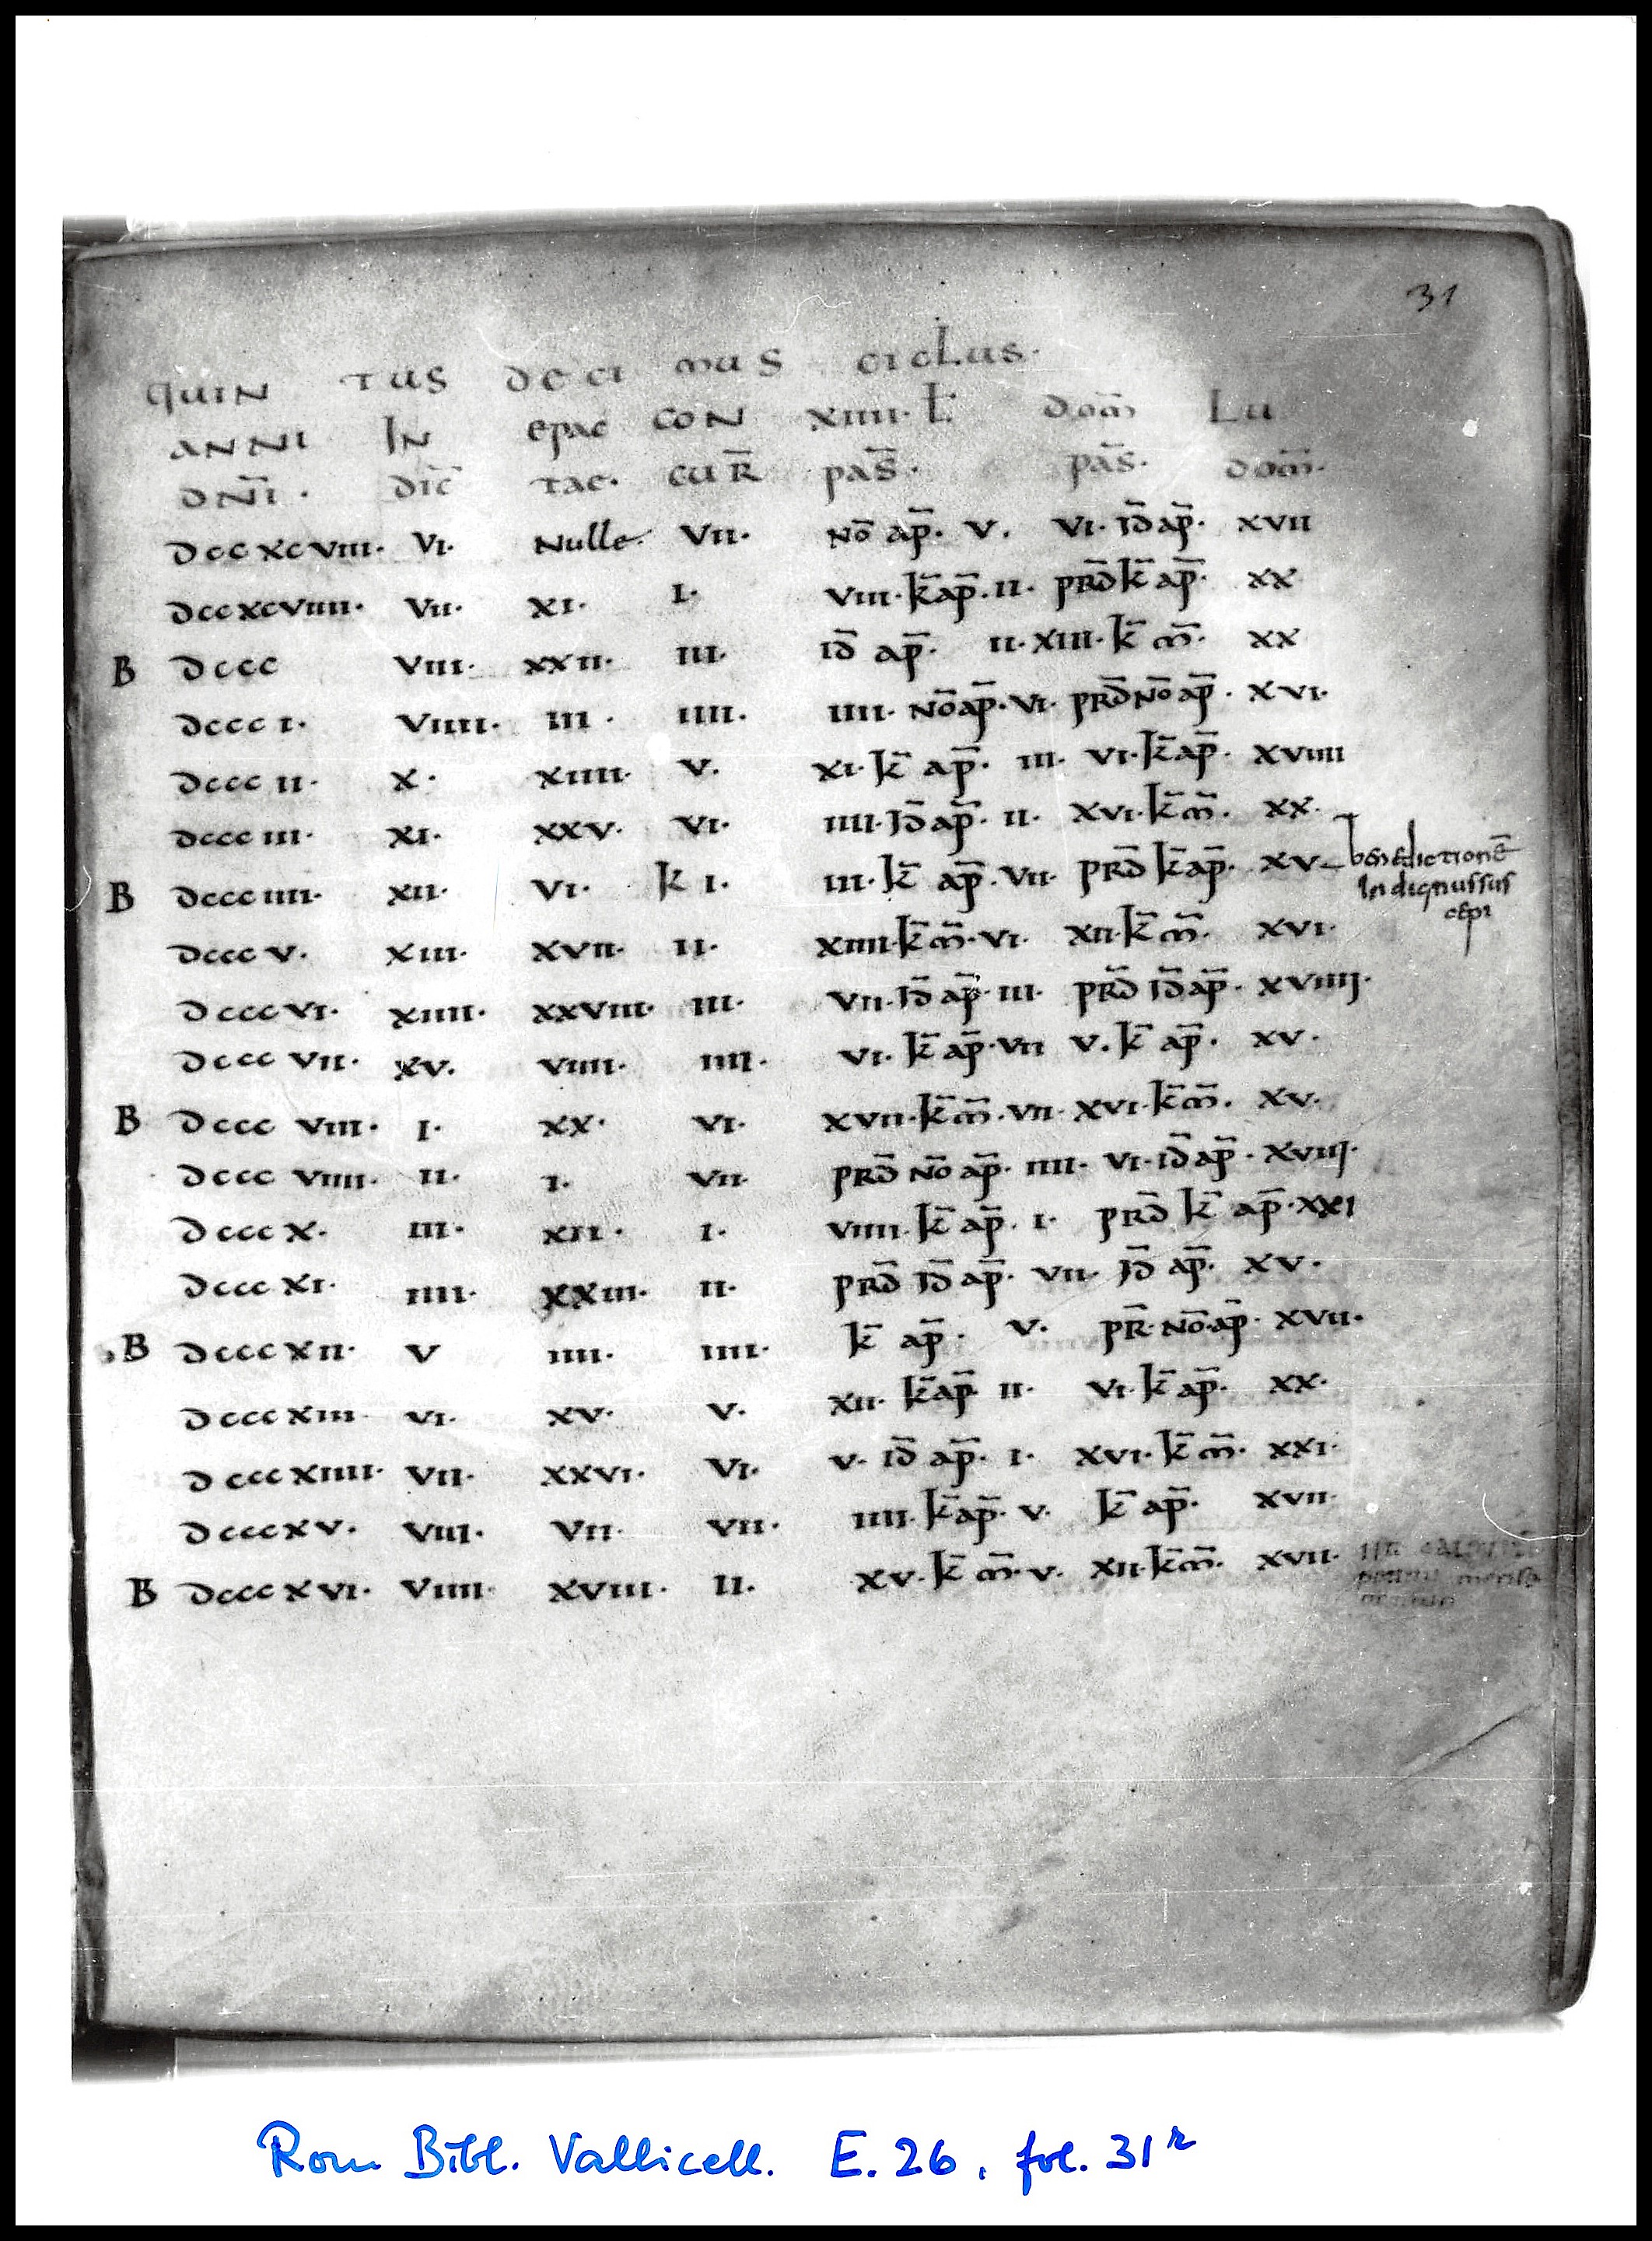 31
QUIN TUS DECI MUS CICLUS·
ANNI IN EPAC CON XIIII·L̄ DOM̄ LU
DN̄I · DIC̄ TAE· CUR̄ PAS̄· PAS̄· DOM̄·
DCCXCVIII· VI· Nulle· VII· NŌ AP̄· V· VI· ID̄ AP̄· XVII
DCCXCVIIII· VII· XI· I· VIII· K̄ AP̄· II· PRD̄ K̄ AP̄· XX
B DCCC VIII· XXII· III· ID̄ AP̄· II· XIII· K̄ M̄· XX
DCCC I· VIIII· III· IIII· IIII· NŌ AP̄· VI· PRD̄ NŌ AP̄· XVI·
DCCC II· X· XIIII· V· XI· K̄ AP̄· III· VI· K̄ AP̄· XVIIII
DCCC III· XI· XXV· VI· IIII· ID̄ AP̄· II· XVI· K̄ M̄· XX·
B DCCC IIII· XII· VI· K I· III· K̄ AP̄· VII· PRD̄ K̄ AP̄· XV benedictionē
indignus sus
cepi
DCCC V· XIII· XVII· II· XIIII· K̄ M̄· VI· XII· K̄ M̄· XVI·
DCCC VI· XIIII· XXVIII· III· VII· ID̄ AP̄· III· PRD̄ ID̄ AP̄· XVIIIJ·
DCCC VII· XV· VIIII· IIII· VI· K̄ AP̄· VII V· K̄ AP̄· XV·
B DCCC VIII· I· XX· VI· XVII· K̄ M̄· VII· XVI· K̄ M̄· XV·
DCCC VIIII· II· I· VII· PRD̄ NŌ AP̄· IIII· VI· ID̄ AP̄· XVIIJ·
DCCC X· III· XII· I· VIIII· K̄ AP̄· I· PRD̄ K̄ AP̄· XXI
DCCC XI· IIII· XXIII· II· PRD̄ ID̄ AP̄· VII· ID̄ AP̄· XV·
B DCCC XII· V IIII· IIII· K̄ AP̄· V· PR̄· NŌ· AP̄· XVII·
DCCC XIII· VI· XV· V· XII· K̄ AP̄· II· VI· K̄ AP̄· XX·
DCCC XIIII· VII· XXVI· VI· V· ID̄ AP̄· I· XVI· K̄ M̄· XXI·
DCCC XV· VIII· VII· VII· IIII· K̄ AP̄· V· K̄ AP̄· XVII·
B DCCC XVI· VIIII· XVIII· II· XV· K̄ M̄· V· XII· K̄ M̄· XVII·
Rom Bibl. Vallicell. E. 26, fol. 31r